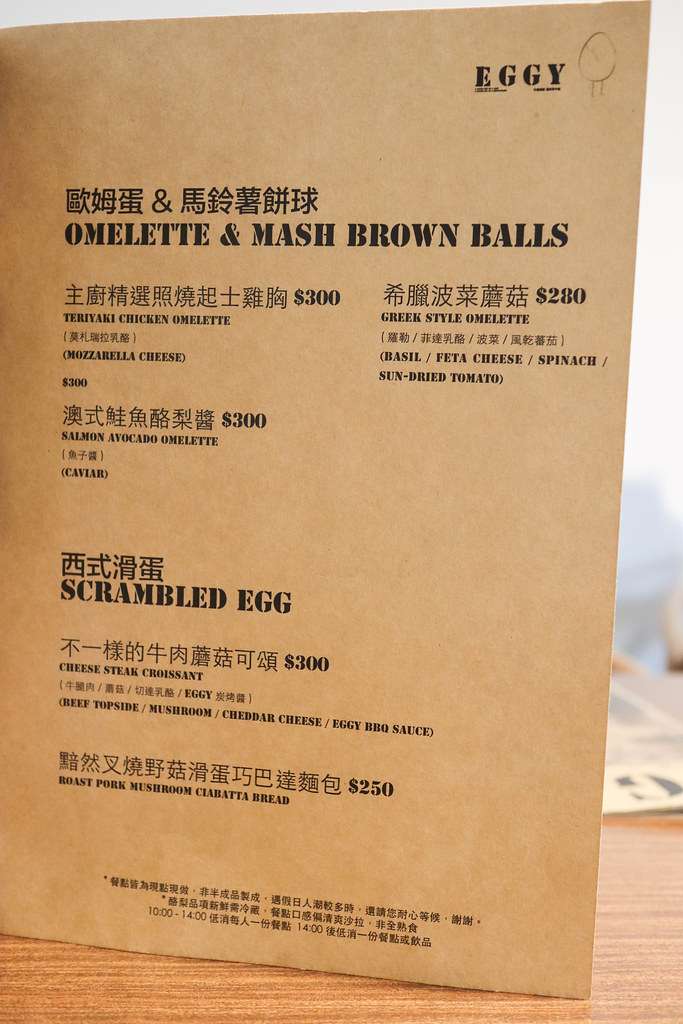 EGGY
歐姆蛋 & 馬鈴薯餅球
OMELETTE & MASH BROWN BALLS
主廚精選照燒起士雞胸 $300
TERIYAKI CHICKEN OMELETTE
(莫札瑞拉乳酪)
(MOZZARELLA CHEESE)
$300
希臘波菜蘑菇 $280
GREEK STYLE OMELETTE
(羅勒 / 菲達乳酪 / 波菜 / 風乾蕃茄)
(BASIL / FETA CHEESE / SPINACH /
SUN-DRIED TOMATO)
澳式鮭魚酪梨醬 $300
SALMON AVOCADO OMELETTE
(魚子醬)
(CAVIAR)
西式滑蛋
SCRAMBLED EGG
不一樣的牛肉蘑菇可頌 $300
CHEESE STEAK CROISSANT
(牛腿肉 / 蘑菇 / 切達乳酪 / EGGY 炭烤醬)
(BEEF TOPSIDE / MUSHROOM / CHEDDAR CHEESE / EGGY BBQ SAUCE)
黯然叉燒野菇滑蛋巧巴達麵包 $250
ROAST PORK MUSHROOM CIABATTA BREAD
*餐點皆為現點現做,非半成品製成,遇假日人潮較多時,還請您耐心等候,謝謝。
*酪梨品項新鮮需冷藏,餐點口感偏清爽沙拉,非全熟食
10:00 - 14:00 低消每人一份餐點 14:00 後低消一份餐點或飲品